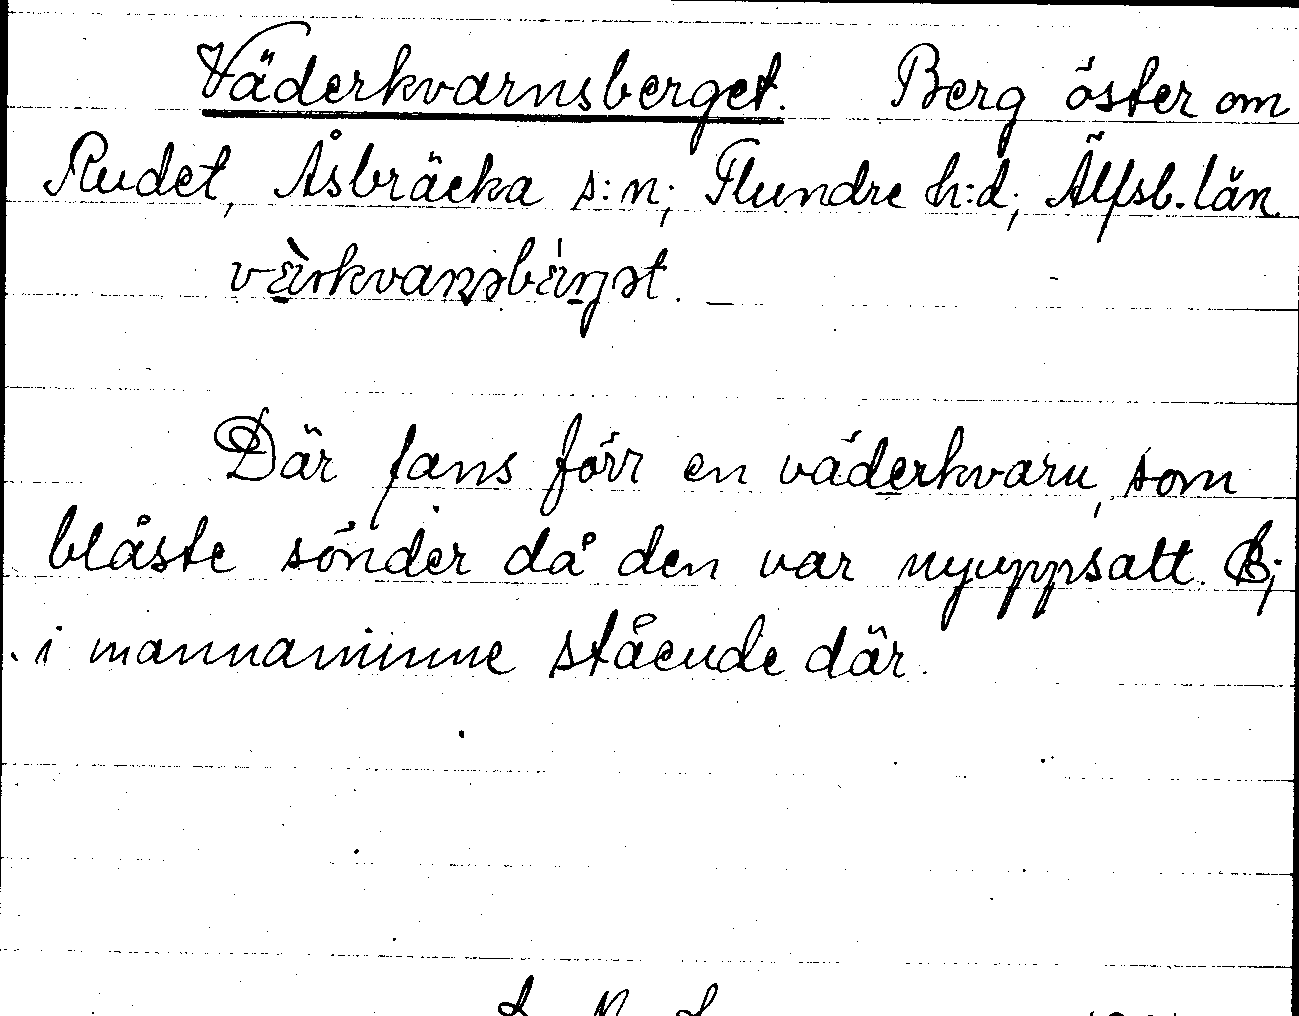 Väderkvarnsberget. Berg öster om
Rudet, Åsbräcka s:n; Flundre h:d; Älfsb. län
Där fans förr en väderkvarn, som
blåste sönder då den var nyuppsatt. Ej
i mannaminne stående där.